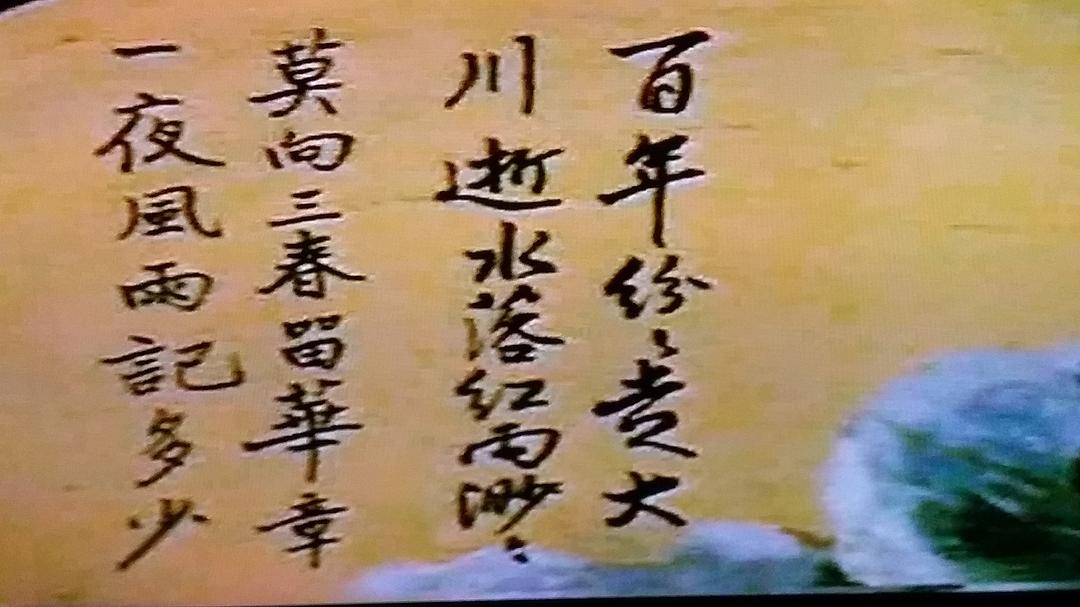 百年纷〻走大
川逝水落红雨渺〻
莫向三春留華章
一夜風雨記多少